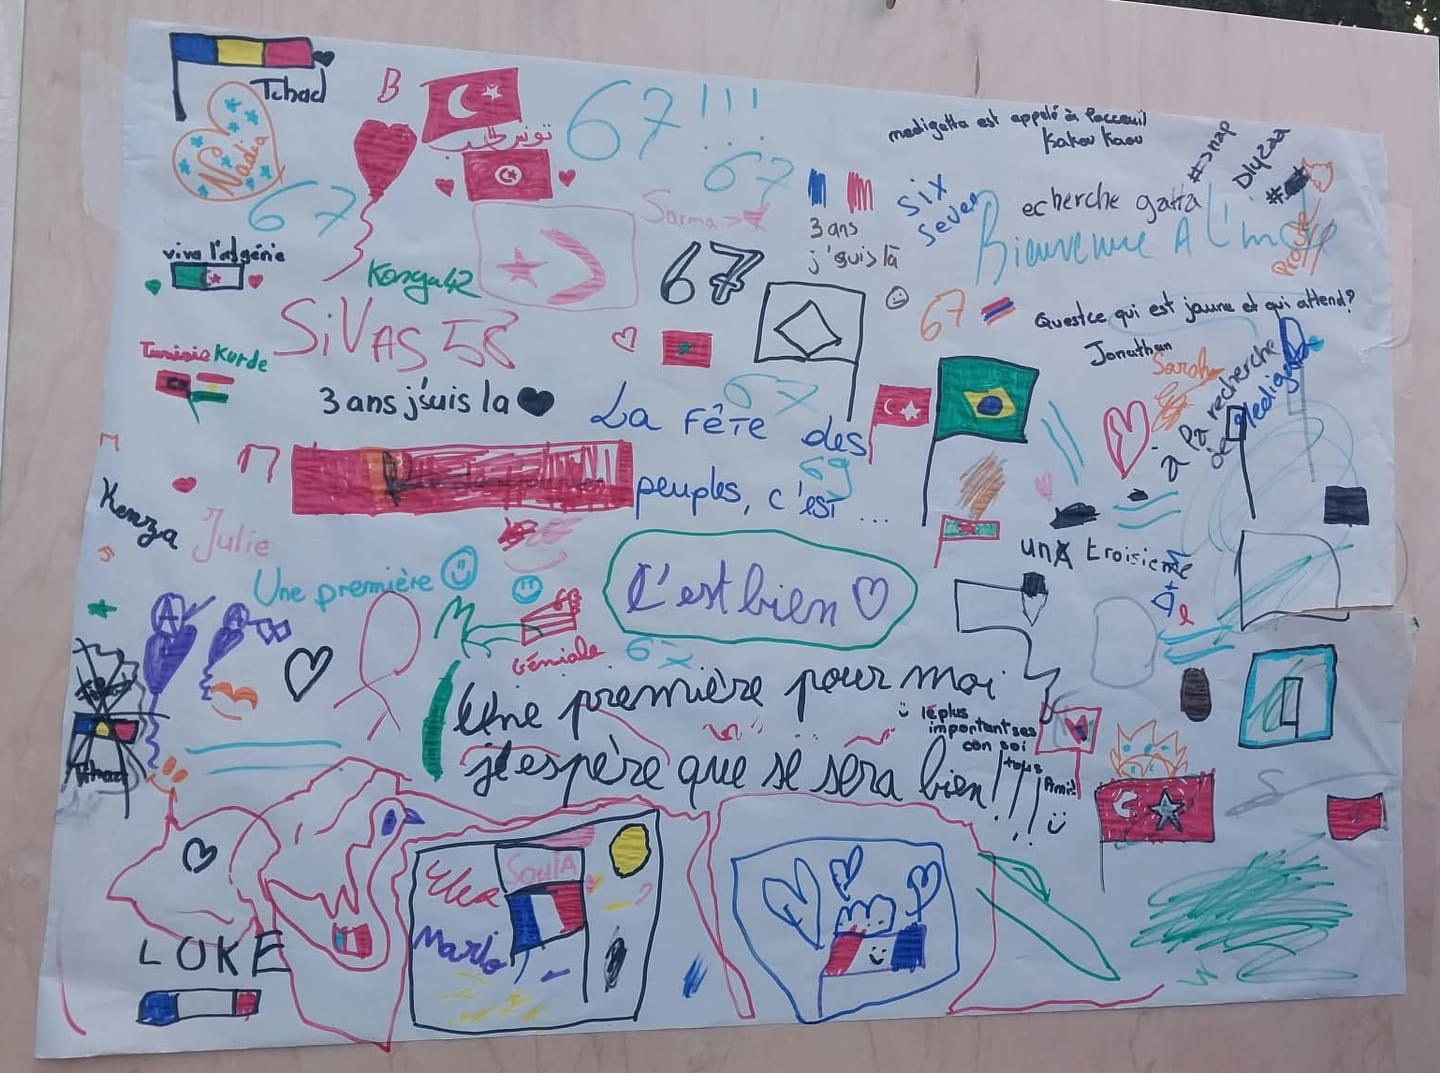 Tchad
B
67!!!
medigatta est appelé à l'acceuil
Kakou Kaou
#snap
Dlyzaa
#
Nadia
تونس
67
67
Sarma >
six
seven
echerche gatta
3 ans
j'suis là
Bienvenue A
vive l'algérie
Konya42
67
67
Questce qui est jaune et qui attend?
Jonathan
Sarah
SiVAS 58
Tunisie Kurde
3 ans j'suis la
67
La FêTE des
peuples, c'est ...
69
à la recherche
de Medigatta
Kenza
Julie
un troisieme
Une première
C'est bien
Géniale
67
A
Une première pour moi
j'espère que se sera bien!!!
le plus
important ses
con soi
tous
Ami!
Tchad
Elea
SoulA
Mario
LOKE